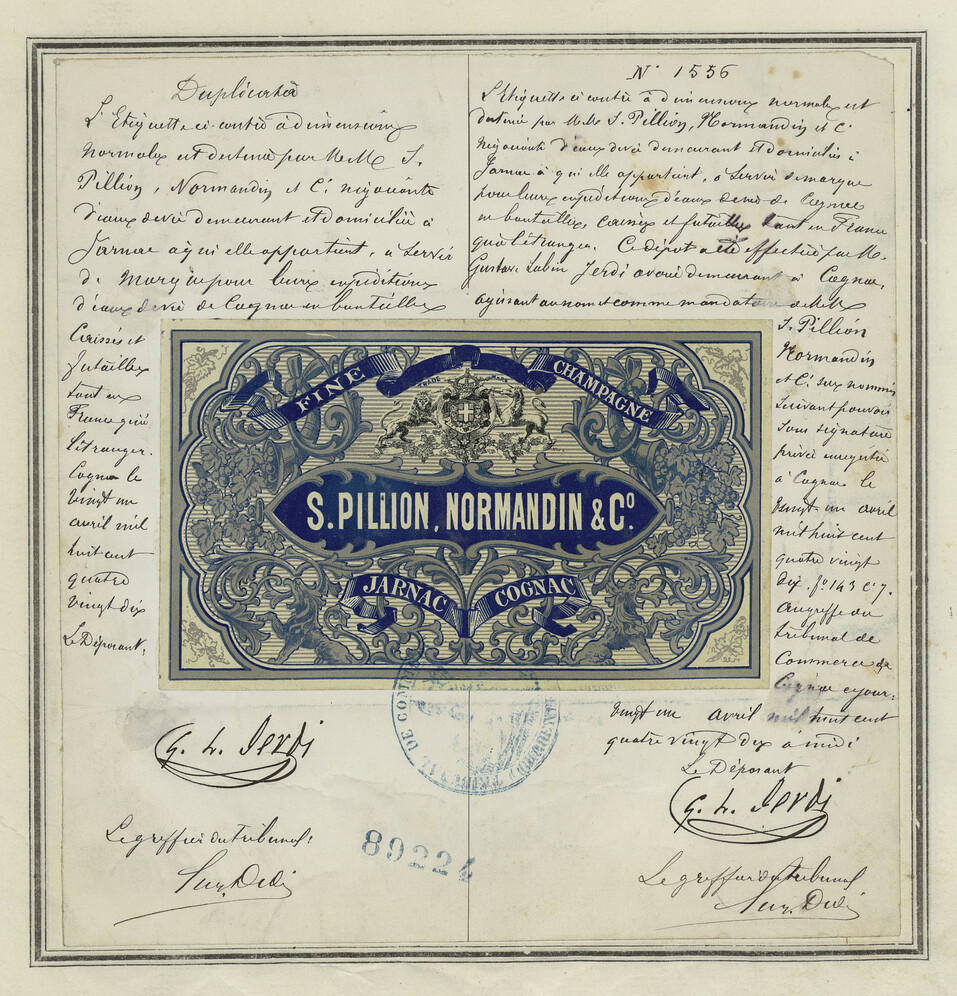 Duplicata
L'Etiquette ci-contre à dimensions
normales est destinée par M.M. S.
Pillion, Normandin et Cie négociants
d'eaux de vie demeurant et domiciliés à
Jarnac à qui elle appartient, à servir
de marque pour leurs expéditions
d'eaux de vie de Cognac en bouteilles
Caisses et
futailles
tant en
France qu'à
l'étranger.
Cognac le
Vingt un
avril mil
huit cent
quatre
Vingt dix
Le Déposant,
G. L. Jerdi
Le greffier du Tribunal:
N° 1556
L'Etiquette ci-contre à dimensions normales est
destinée par M.M. S. Pillion, Normandin et Cie
négociants d'eaux de vie demeurant et domiciliés à
Jarnac à qui elle appartient, à servir de marque
pour leurs expéditions d'eaux de vie de Cognac
en bouteilles, caisses et futailles tant en France
qu'à l'étranger. Ce dépôt a été effectué par M.
Gustave Lubin Jerdi avoué demeurant à Cognac,
agissant au nom et comme mandataire de M.M.
S. Pillion
Normandin
et Cie sus nommés
suivant pouvoir
sous signature
privée enregistré
à Cognac le
Vingt un avril
mil huit cent
quatre vingt
dix. f° 143 C. 7.
Au greffe du
tribunal de
Commerce de
Cognac ce jour:
Vingt un avril mil huit cent
quatre vingt dix à midi
Le Déposant
G. L. Jerdi
Le greffier du tribunal
FINE CHAMPAGNE
TRADE MARK
S. PILLION, NORMANDIN & Co.
JARNAC COGNAC
TRIBUNAL DE COMMERCE
89224